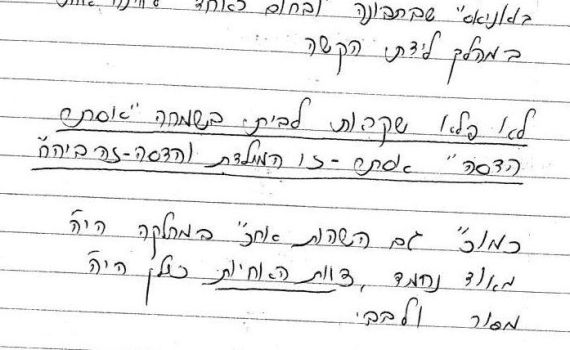 שבתמונה ובחום
במהלך לידתי הקשה
לא פלא שקראתי לביתי בשמחה "אסתר
הדסה" אסתר-זו המילדת והדסה-זה ביה"ח
כמו"כ גם השהות אח"כ במחלקה היה
מאוד נחמד, צוות האחיות כולן היה
מסור ולבבי.